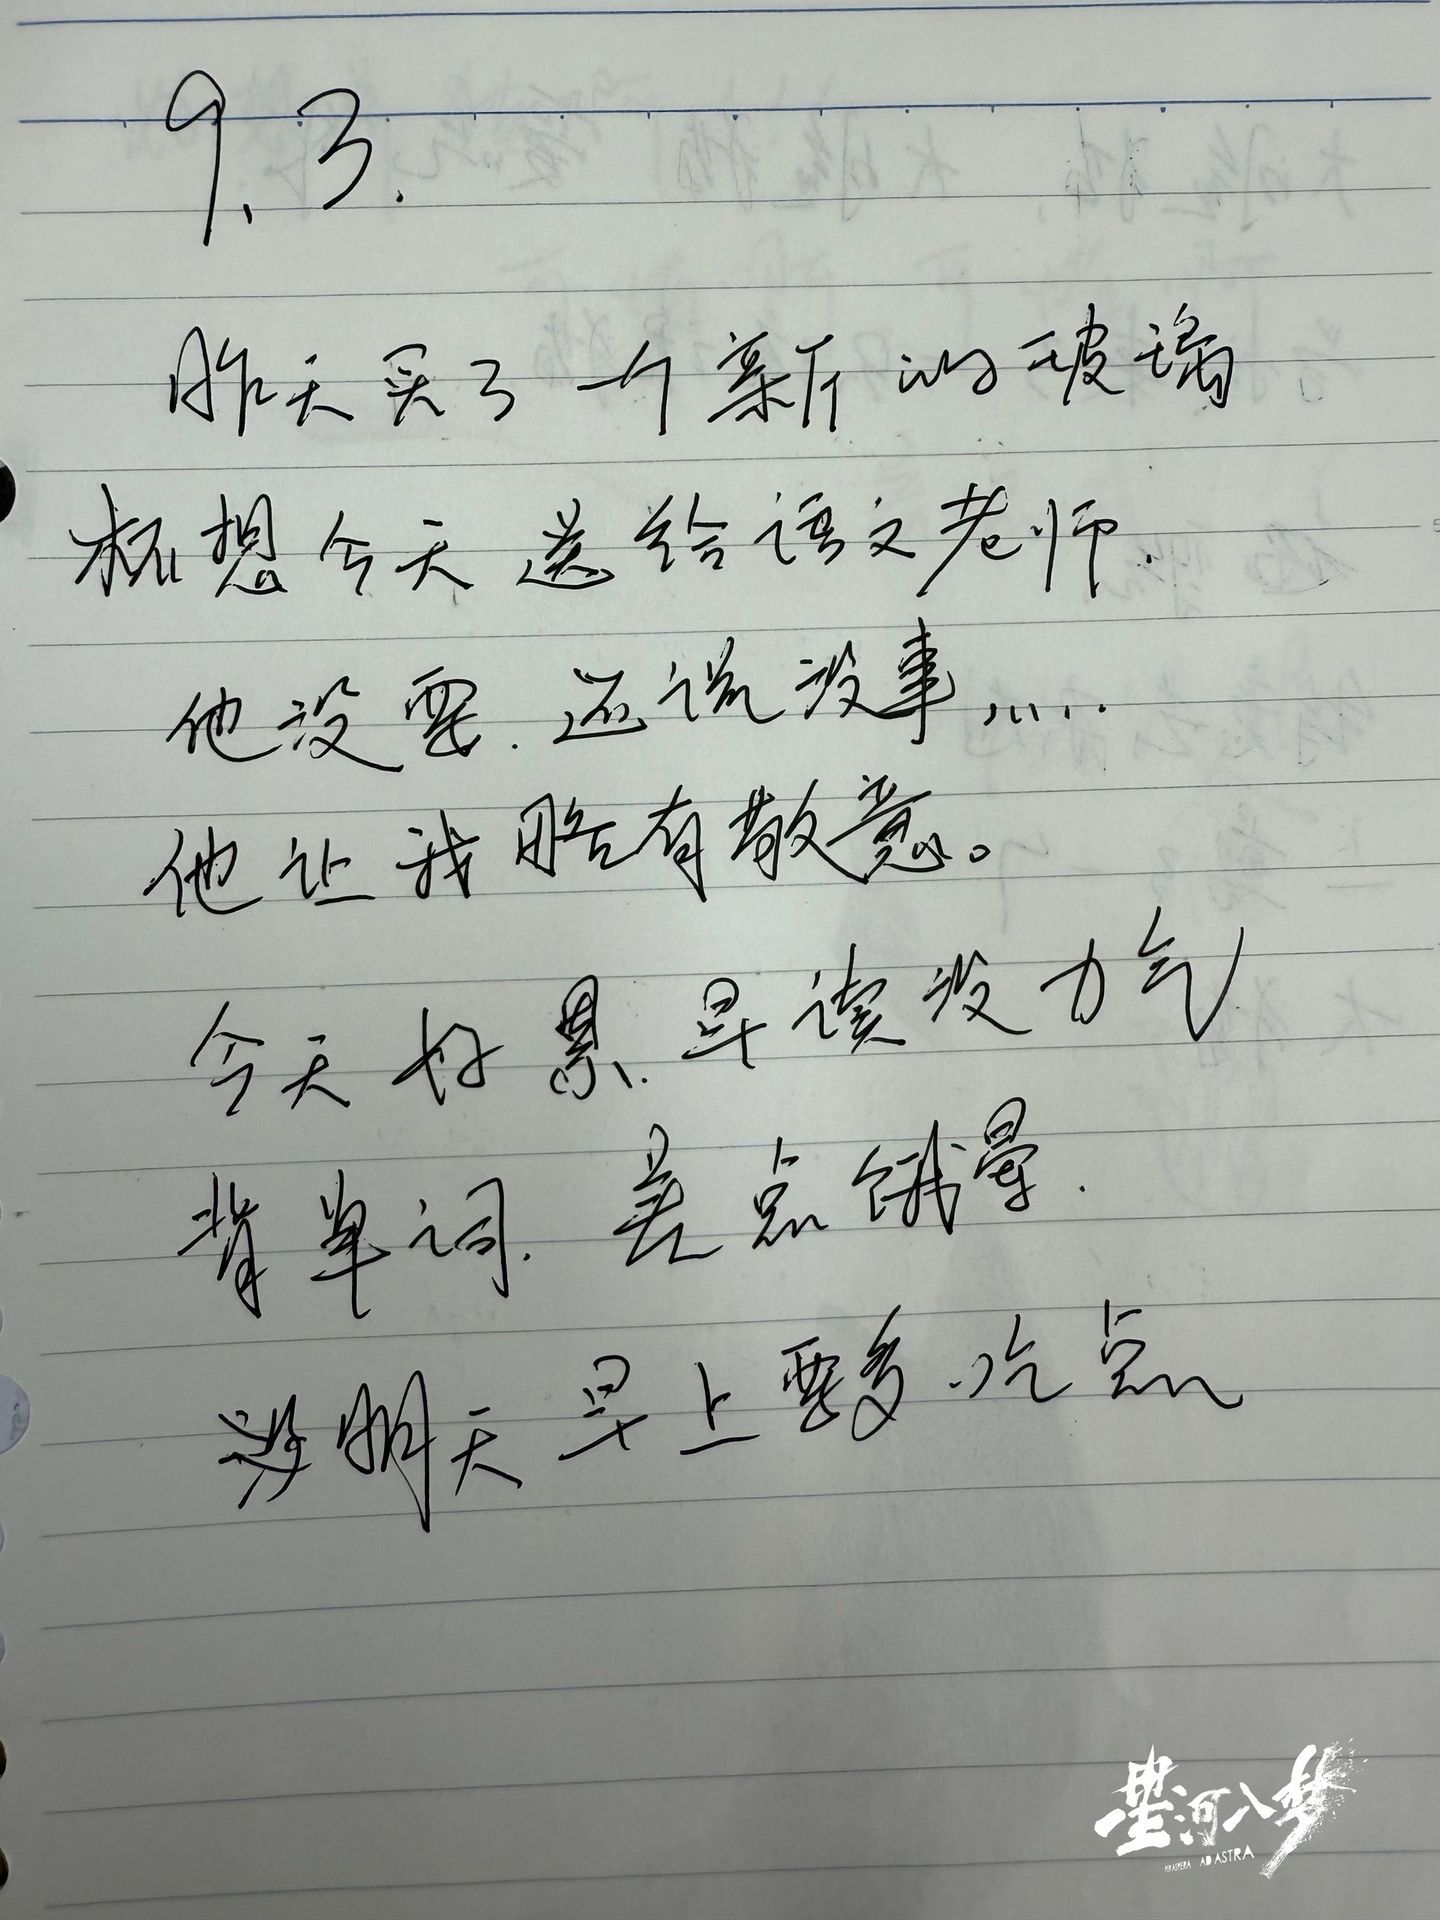 9.3.
昨天买了一个新的玻璃
杯想今天送给语文老师.
他没要.还说没事.....
他让我略有散意。
今天好累.早读没力气
背单词.差点饿晕.
明天早上要多吃点
星河入梦
PER ASPERA AD ASTRA